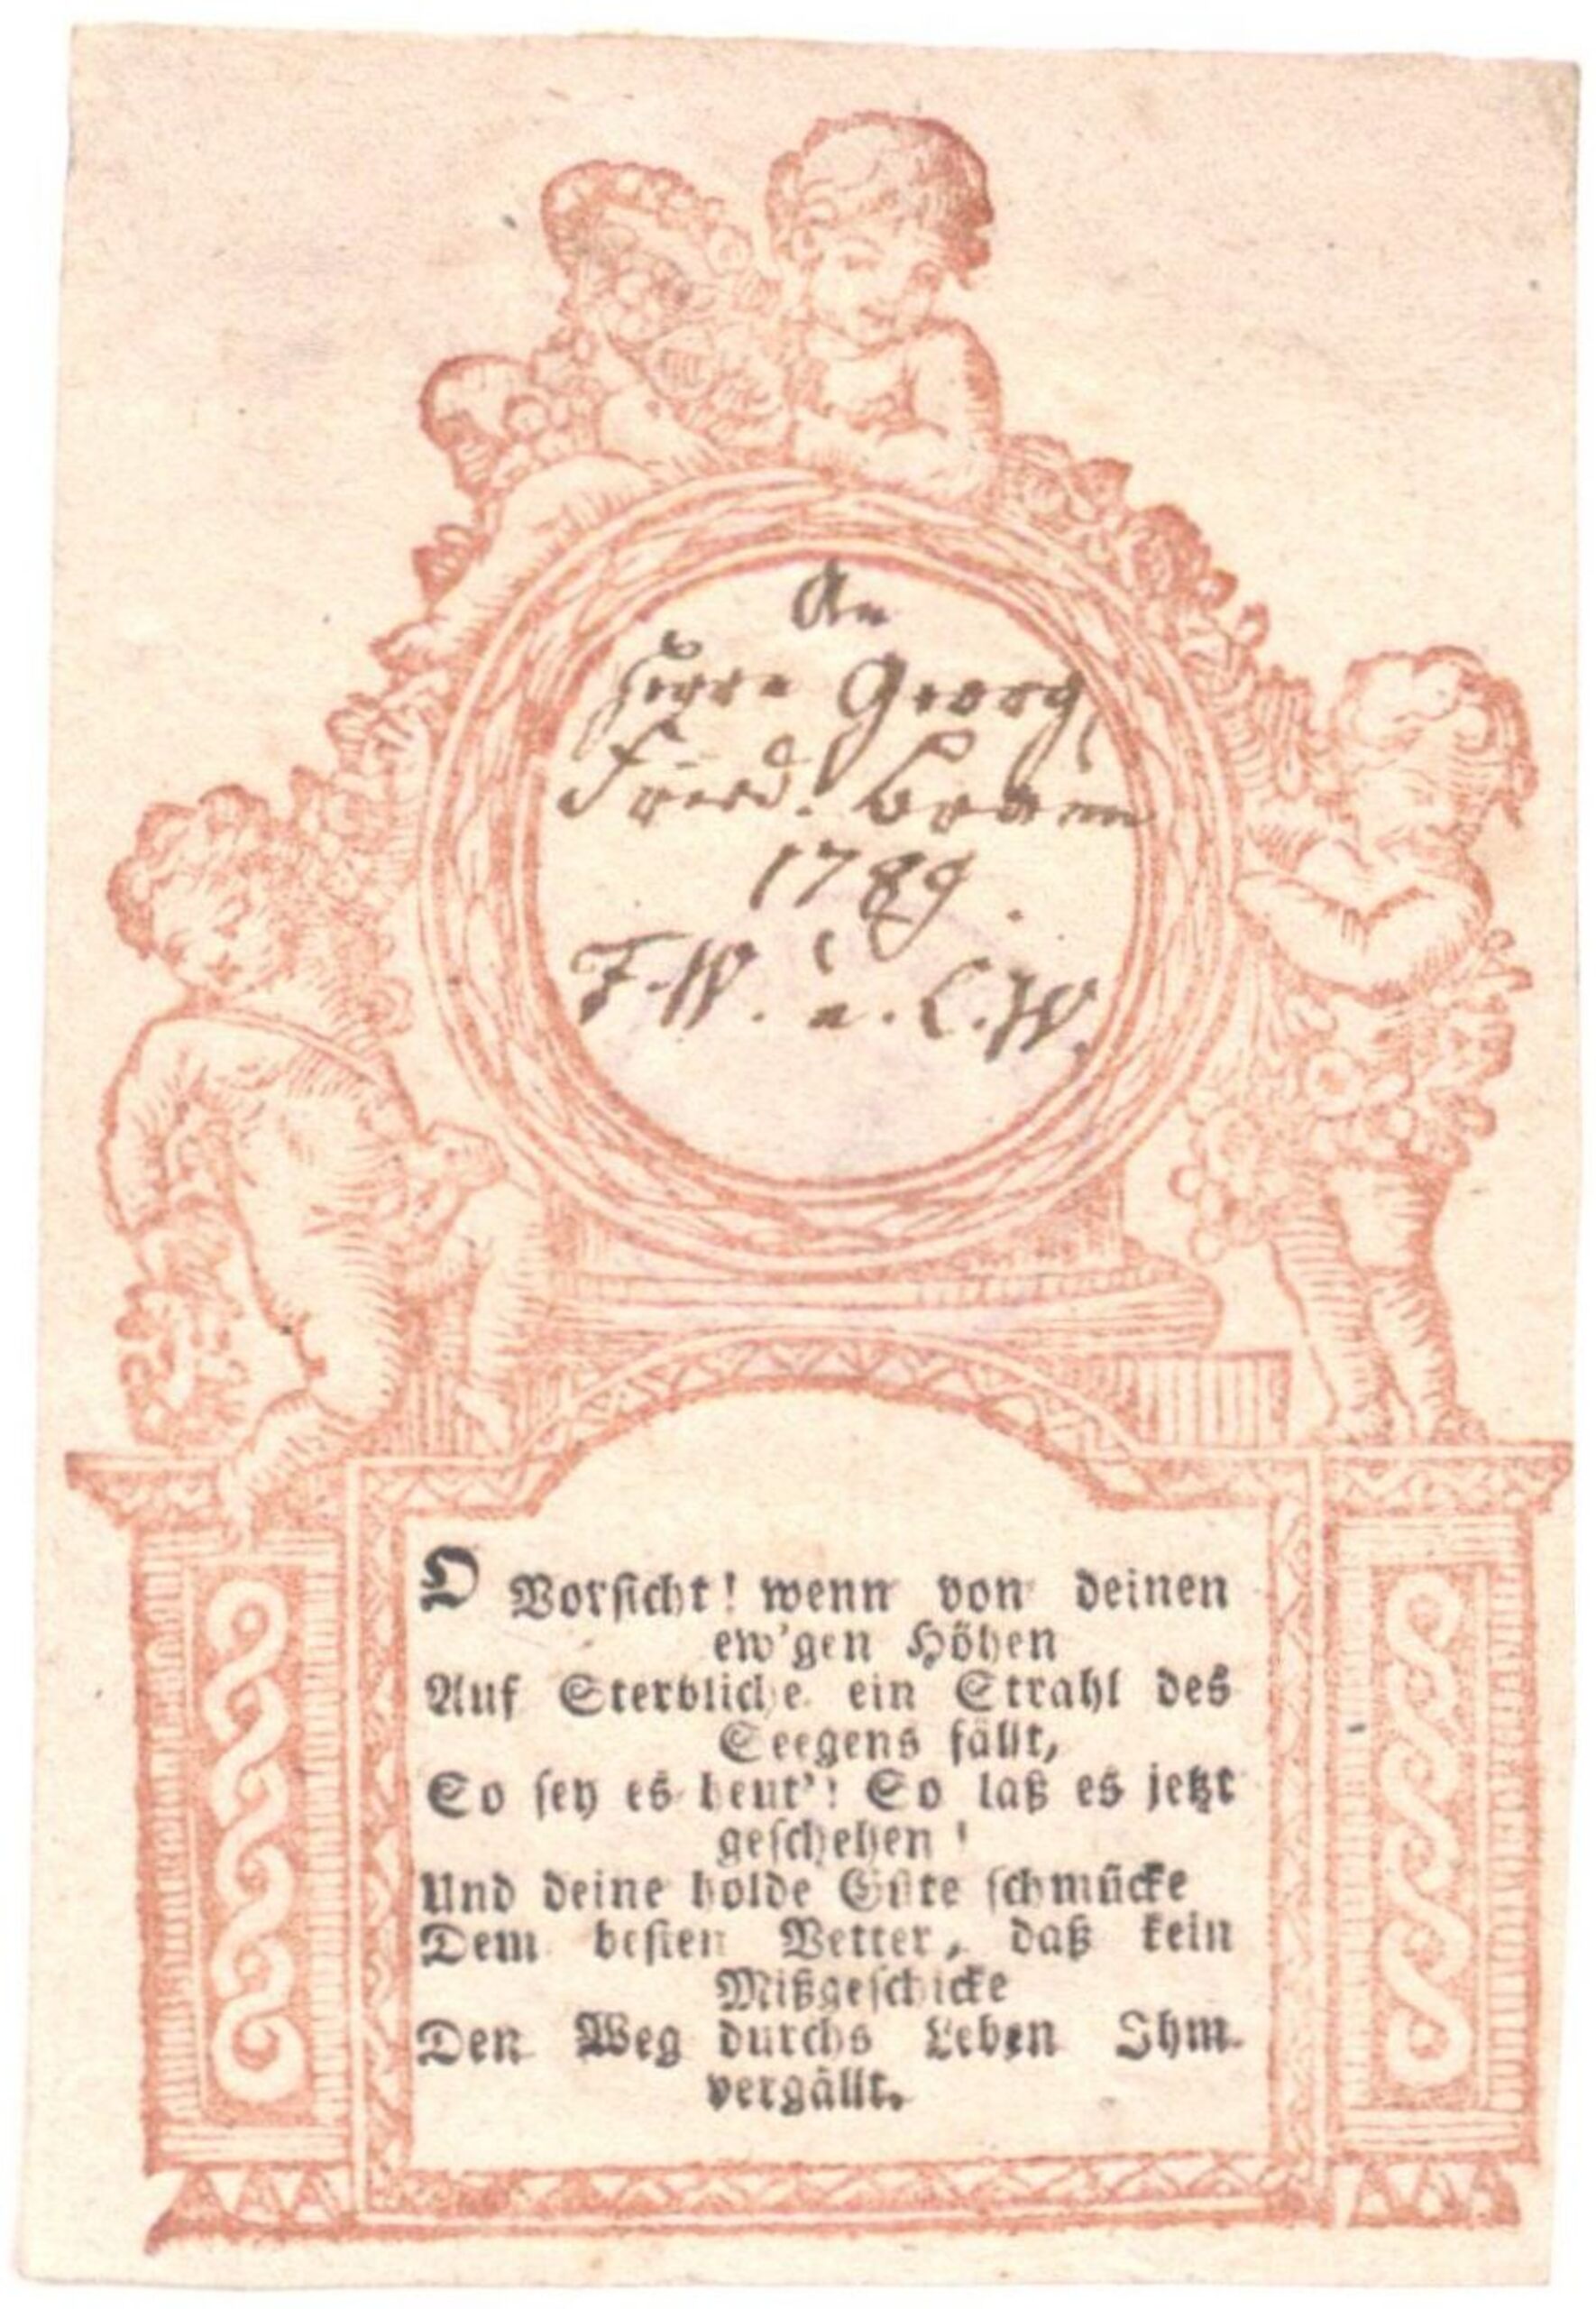 An
Herrn Georg
Fried. Braun
1789.
F. W. u. L. W.
O Vorsicht! wenn von deinen
ew'gen Höhen
Auf Sterbliche ein Strahl des
Seegens fällt,
So sey es heut'! So laß es jetzt
geschehen!
Und deine holde Güte schmücke
Dem besten Vetter, daß kein
Mißgeschicke
Den Weg durchs Leben Ihm
vergällt.